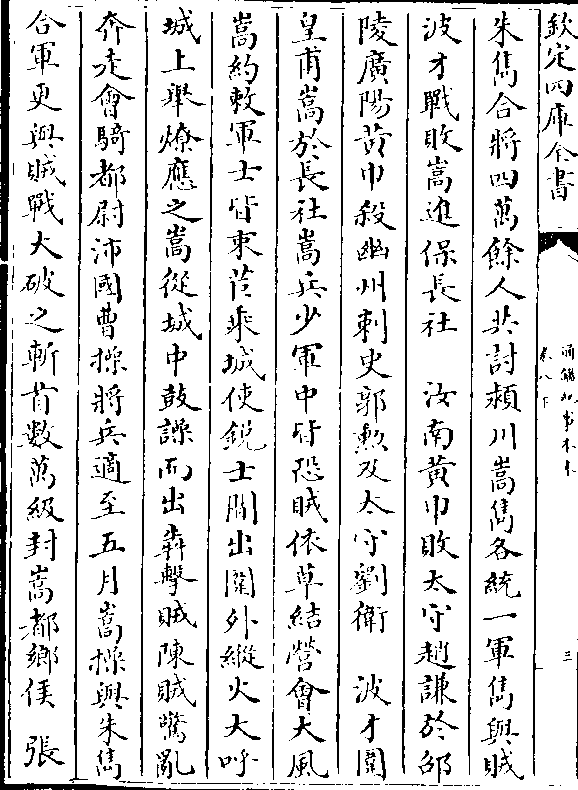 欽定四庫全書
通鑑紀事本末
卷八下
三
朱儁合將四萬餘人共討潁川嵩儁各統一軍儁與賊
波才戰敗嵩進保長社　汝南黄巾敗太守趙謙於邵
陵廣陽黄巾殺幽州刺史郭勲及太守劉衛　波才圍
皇甫嵩於長社嵩兵少軍中皆恐賊依草結營會大風
嵩約敕軍士皆束苣乘城使鋭士間出圍外縱火大呼
城上舉燎應之嵩從城中鼓譟而出犇擊賊陳賊驚亂
奔走會騎都尉沛國曹操將兵適至五月嵩操與朱儁
合軍更與賊戰大破之斬首數萬級封嵩都鄉侯　張